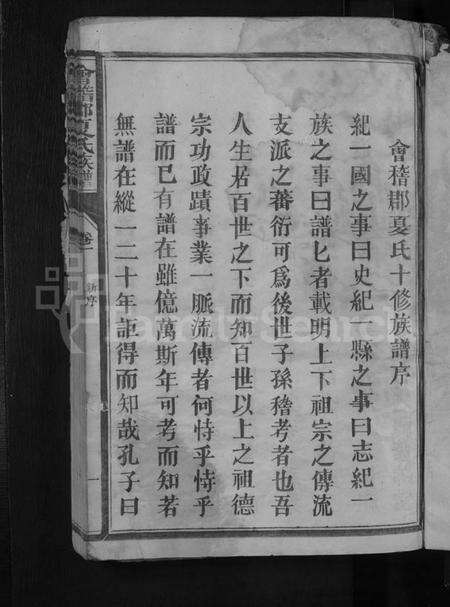 會稽郡夏氏十修族譜序
紀一國之事曰史紀一縣之事曰志紀一
族之事曰譜匕者載明上下祖宗之傳流
支派之蕃衍可爲後世子孫稽考者也吾
人生若百世之下而知百世以上之祖德
宗功政蹟事業一脈流傳者何恃乎恃乎
譜而已有譜在雖億萬斯年可考而知若
無譜在縱一二十年詎得而知哉孔子曰
會稽郡夏氏族譜
卷一
新序
一